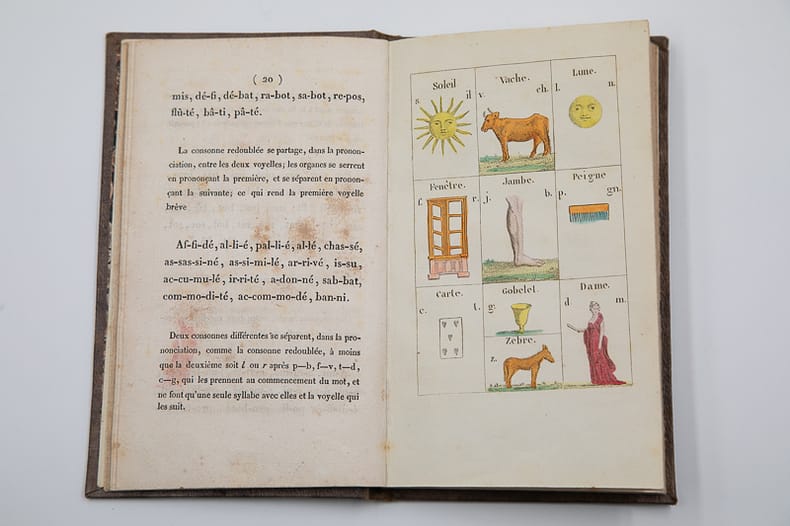 ( 20 )
mis, dé-fi, dé-bat, ra-bot, sa-bot, re-pos,
flû-té, bâ-ti, pâ-té.
La consonne redoublée se partage, dans la pronon-
ciation, entre les deux voyelles; les organes se serrent
en prononçant la première, et se séparent en pronon-
çant la suivante; ce qui rend la première voyelle
brève
Af-fi-dé, al-li-é, pal-li-é, al-lé, chas-sé,
as-sas-si-né, as-si-mi-lé, ar-ri-vé, is-su,
ac-cu-mu-lé, ir-ri-té, a-don-né, sab-bat,
com-mo-di-té, ac-com-mo-dé, ban-ni.
Deux consonnes différentes se séparent, dans la pro-
nonciation, comme la consonne redoublée, à moins
que la deuxième soit l ou r après p—b, f—v, t—d,
c—g, qui les prennent au commencement du mot, et
ne font qu'une seule syllabe avec elles et la voyelle qui
les suit.
Soleil
s. il
Vache.
v. ch.
Lune.
l. n.
Fenêtre.
f. r.
Jambe.
j. b.
Peigne
p. gn.
Carte.
c. t.
Gobelet.
g.
Zèbre.
z.
Dame.
d m.